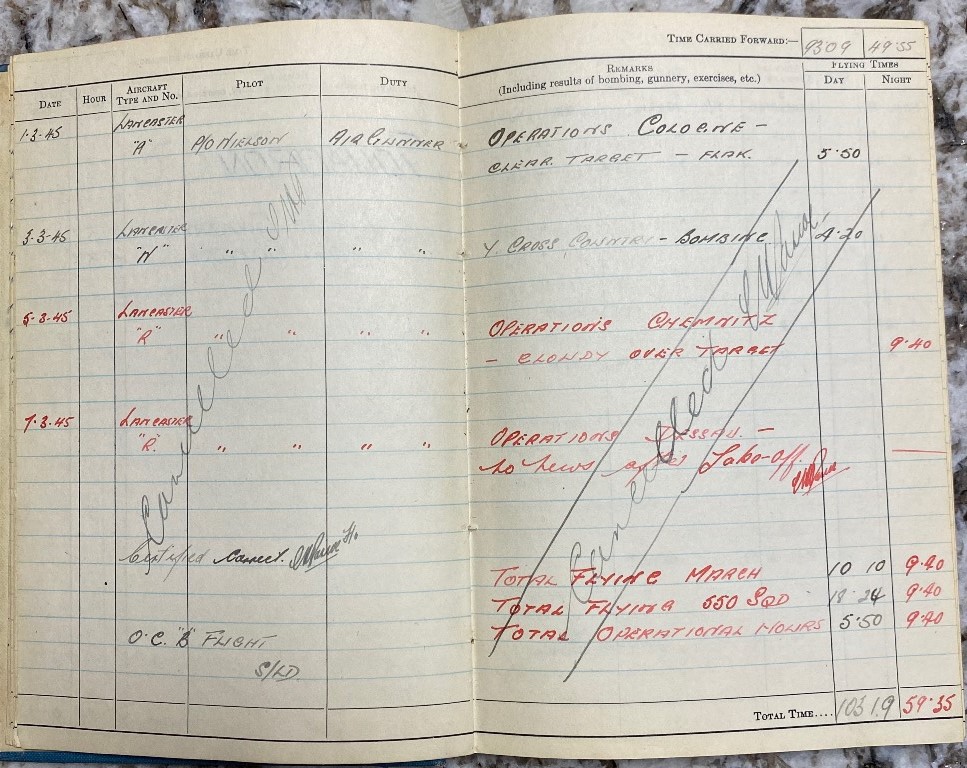 TIME CARRIED FORWARD:— 93 09 49·55
DATE HOUR AIRCRAFT TYPE AND NO. PILOT DUTY
REMARKS (Including results of bombing, gunnery, exercises, etc.) FLYING TIMES DAY NIGHT
1·3·45 LANCASTER "A" P/O NIELSON AIR GUNNER
OPERATIONS COLOGNE –
CLEAR TARGET – FLAK. 5·50
3·3·45 LANCASTER
"N" " " " "
Y. CROSS COUNTRY – BOMBING 4·20
5·3·45 LANCASTER
"R" " " " "
OPERATIONS CHEMNITZ
– CLOUDY OVER TARGET 9·40
7·3·45 LANCASTER
"R" " " " "
OPERATIONS DESSAU –
no news after take-off. —
Cancelled
Cancelled
Certified Correct.
O.C. "B" FLIGHT
S/LD.
TOTAL FLYING MARCH 10 10 9·40
TOTAL FLYING 550 SQD 18·24 9·40
TOTAL OPERATIONAL HOURS 5·50 9·40
TOTAL TIME.... 103 19 59·35